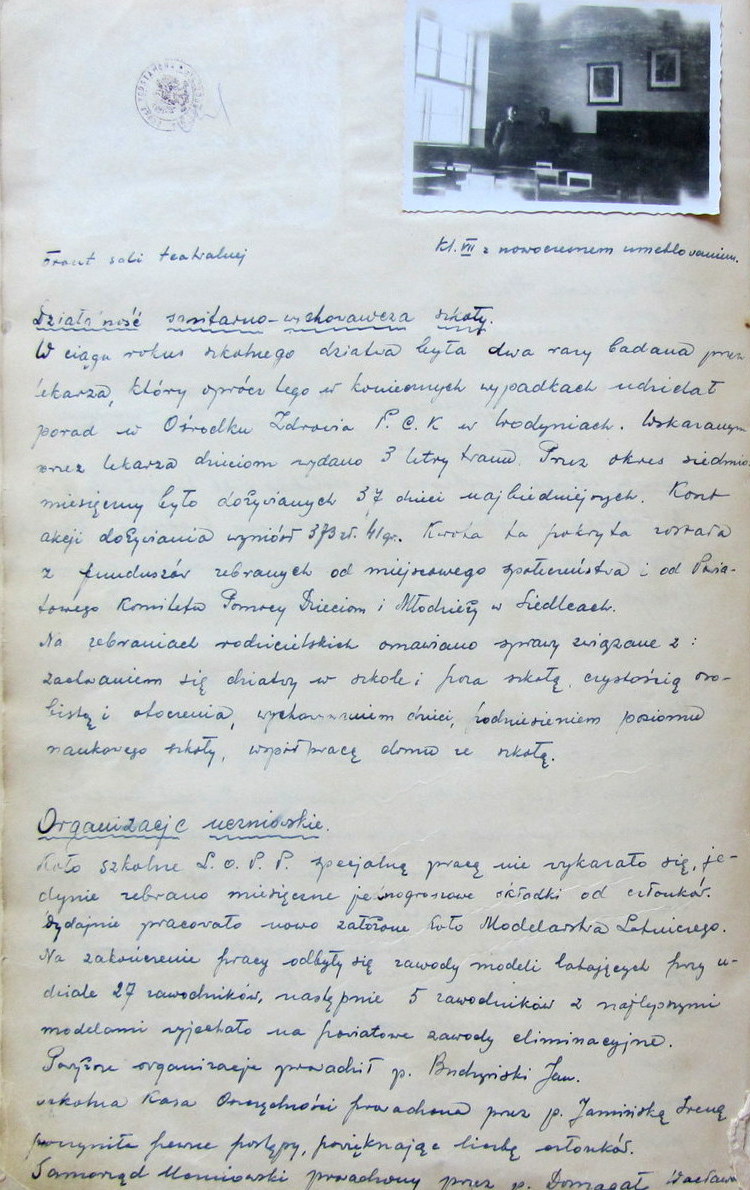 Front sali teatralnej
Kl. VII z nowoczesnem umeblowaniem.
Działalność sanitarno-wychowawcza szkoły.
W ciągu roku szkolnego dziatwa była dwa razy badana przez
lekarza, który oprócz tego w koniecznych wypadkach udzielał
porad w Ośrodku Zdrowia P.C.K w Wodyniach. Wskazanym
przez lekarza dzieciom wydano 3 litry tranu. Przez okres siedmio
miesięczny było dożywianych 37 dzieci najbiedniejszych. Koszt
akcji dożywiania wyniósł 373 zł. 41 gr. Kwota ta pokryta została
z funduszów zebranych od miejscowego społeczeństwa i od Powia-
towego Komitetu Pomocy Dzieciom i Młodzieży w Siedlcach.
Na zebraniach rodzicielskich omawiano sprawy związane z:
zachowaniem się dziatwy w szkole i poza szkołą, czystością oso-
bistą i otoczenia, wychowaniem dzieci, podniesieniem poziomu
naukowego szkoły, współpracą domu ze szkołą.
Organizacje uczniowskie.
Koło szkolne L.O.P.P. specjalną pracą nie wykazało się, je-
dynie zebrano miesięczne jednogroszowe składki od członków.
Wydajnie pracowało nowo założone Koło Modelarstwa Lotniczego.
Na zakończenie pracy odbyły się zawody modeli latających przy u-
dziale 27 zawodników, następnie 5 zawodników z najlepszymi
modelami wyjechało na powiatowe zawody eliminacyjne.
Powyższe organizacje prowadził p. Budzyński Jan.
Szkolna Kasa Oszczędności prowadzona przez p. Jamińską Irenę
poczyniła pewne postępy, powiększając liczbę członków.
Samorząd Uczniowski prowadzony przez p. Domagał Wacława